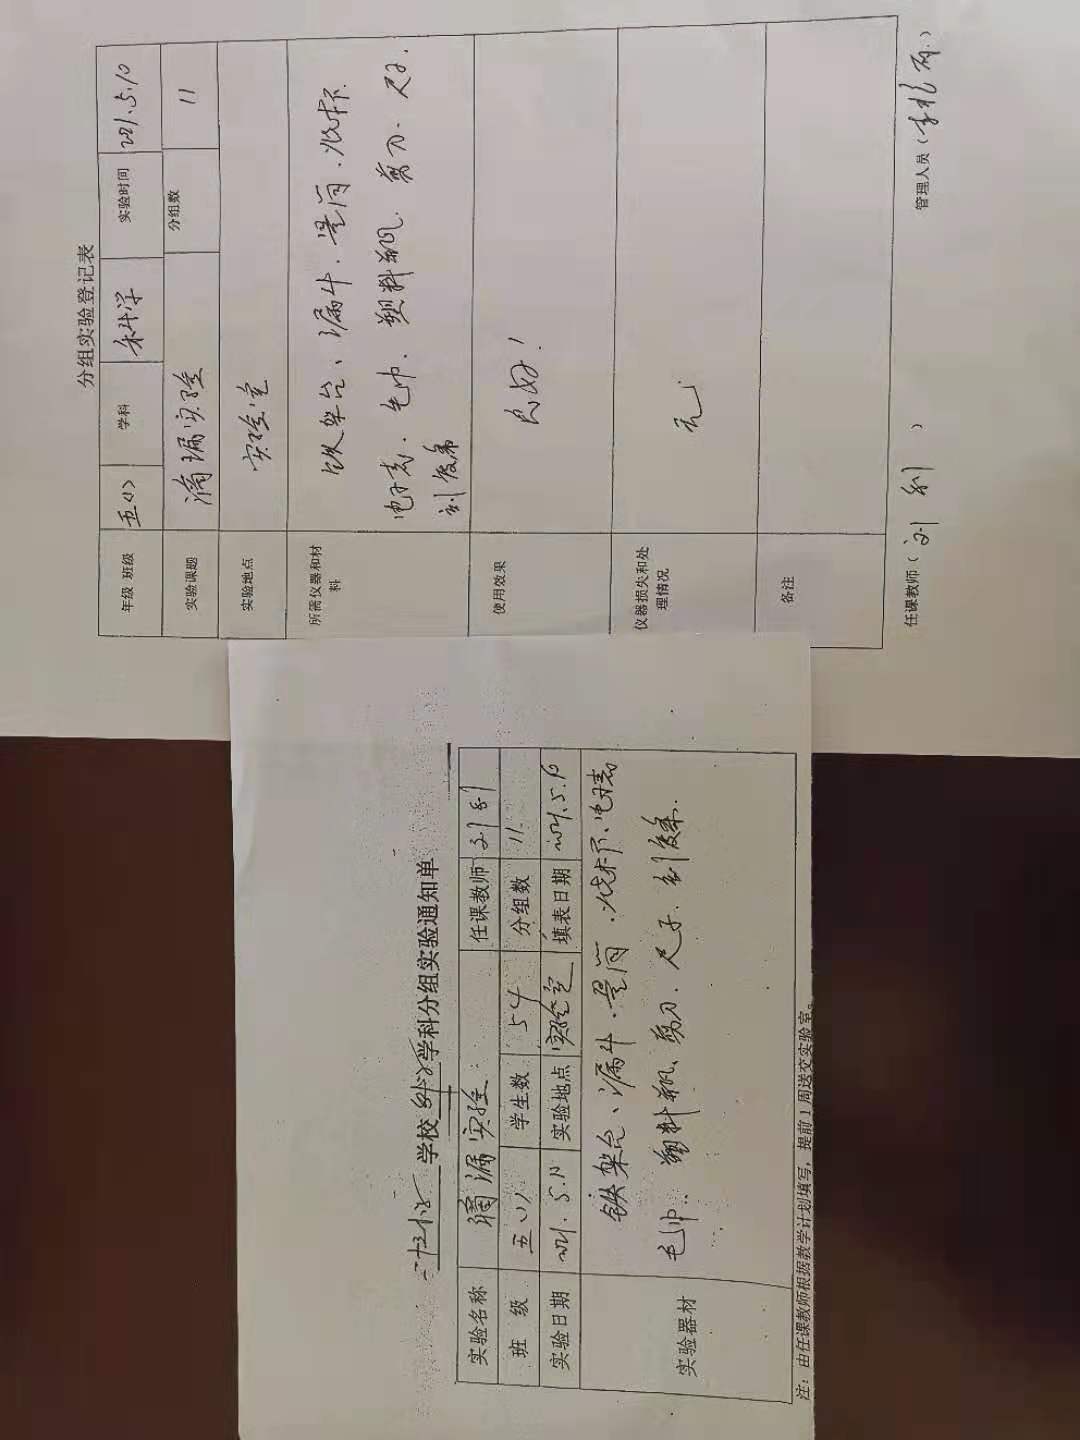 分组实验登记表
年级 班级 五（1） 学科 科学 实验时间 2021.5.10
实验课题 滴漏实验 分组数 11
实验地点 实验室
所需仪器和材料 铁架台、漏斗、量筒、烧杯
电子表、毛巾、塑料瓶、剪刀、尺子、
刻度条
使用效果 良好！
仪器损失和处理情况 无
备注
任课教师（刘利） 管理人员（ ）
学校 科学 学科分组实验通知单
实验名称 滴漏实验 任课教师 刘利
班 级 五（1） 学生数 54 分组数 11
实验日期 2021.5.10 实验地点 实验室 填表日期 2021.5.10
实验器材 铁架台、漏斗、量筒、烧杯、电子表
毛巾、塑料瓶、剪刀、尺子、刻度条.
注：由任课教师根据教学计划填写，提前1周送交实验室。